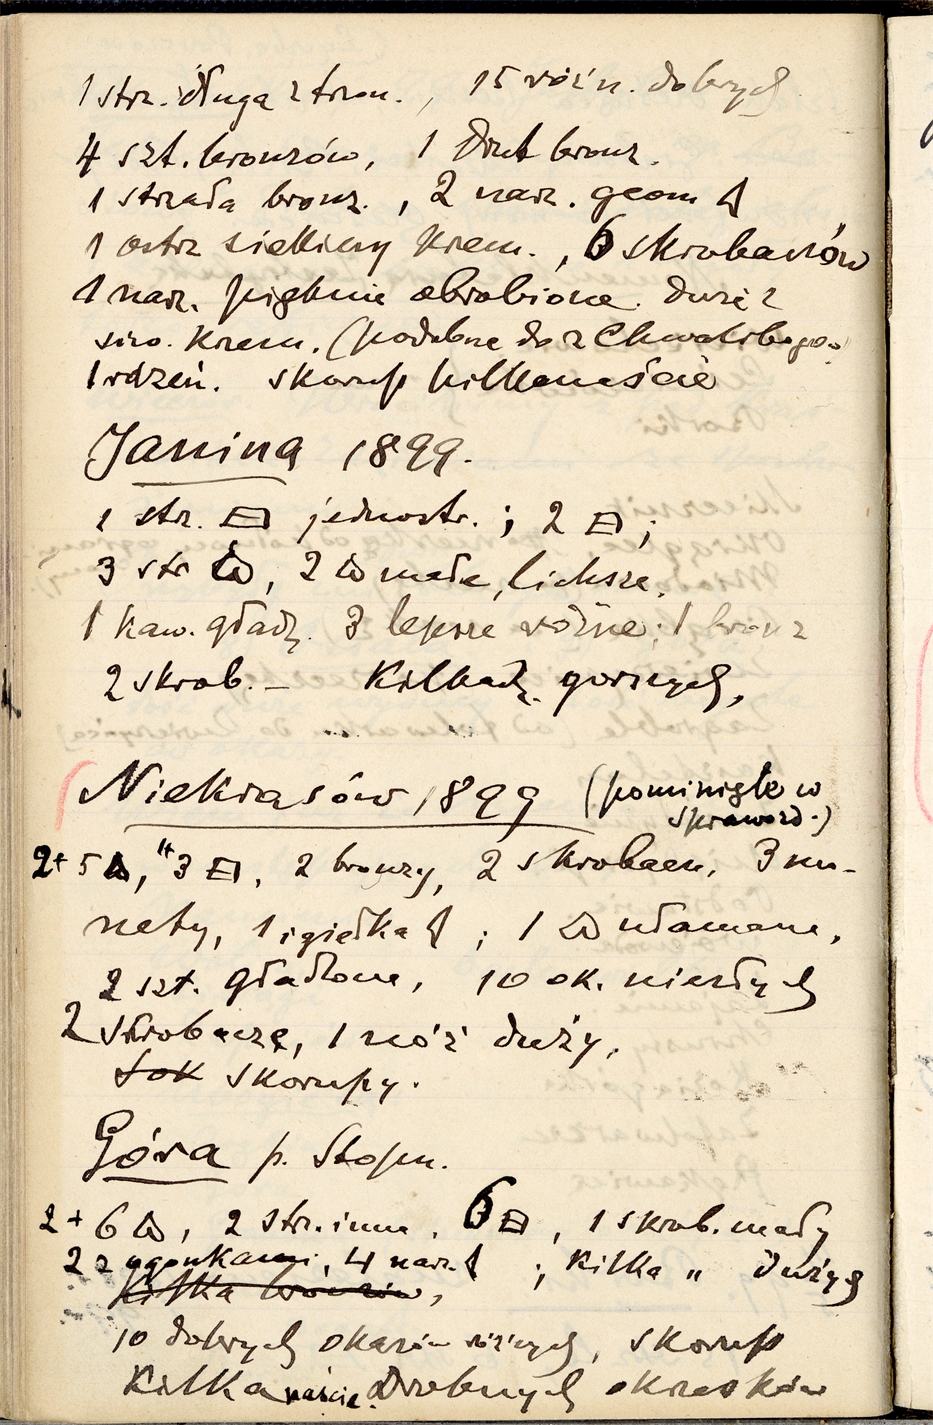 1 str. długa z trzon. , 15 różn. dobrych
4 szt. bronzów, 1 drut bronz.
1 strzała bronz. , 2 narz. geom
1 ostrz siekiery krzem. , 6 skrobaczów
1 narz. pięknie obrobione. duże z
siw. krzem. (podobne do z Chwalibogow)
1 rdzeń. skorup kilkanaście
Janina 1899.
1 str. jednostr. ; 2 ;
3 str , 2 małe, lichsze,
1 kam. gładz. 3 lepsze różne; 1 bronz
2 skrob. — Kilkadz. gorszych,
Niekrasów 1899 (pominięte w
sprawozd.)
2+5 , 3 , 2 bronzy, 2 skrobacz, 3 mo-
nety, 1 igiełka ; 1 ułamana,
2 szt. gładzone, 10 ok. niezłych
2 skrobacze, 1 nóż duży,
skorupy.
Góra p. Stopn.
2+6 , 2 str. inne , 6 , 1 skrob. mały
2 z ogonkami, 4 narz. ; kilka " dużych
Kilka
10 dobrych okazów różnych, skorup
Kilkanaście. Drobnych okrzesków